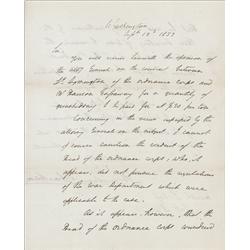 Washington
Sept 12th 1833
Sir,
You will receive herewith the opinion of
the Atty General on the contract between
Lt Symington of the ordnance corps and
Mr Dawson Gassaway for a quantity of
to be paid for at $20 per ton
Concurring in the views expressed by the
Attorney General on the subject, I cannot
of course sanction the conduct of the
Head of the ordnance corps, who, it
appears, did not produce the regulations
of the War Department which were
applicable to the case.
As it appears, however, that the
Head of the ordnance corps considered